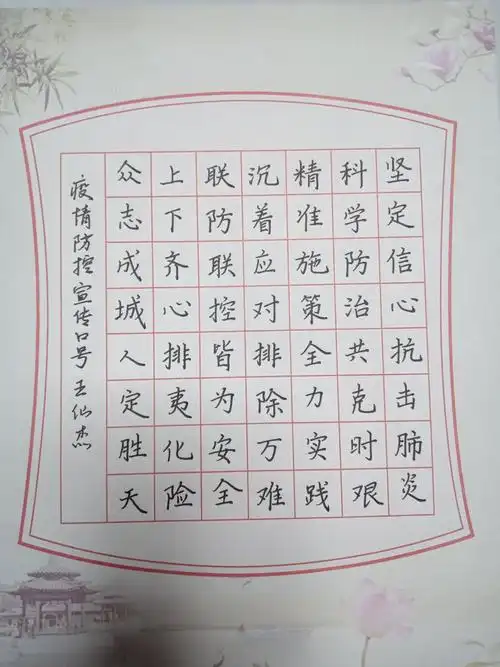 坚定信心抗击肺炎
科学防治共克时艰
精准施策全力实践
沉着应对排除万难
联防联控皆为安全
上下齐心排夷化险
众志成城人定胜天
疫情防控宣传口号王仙杰